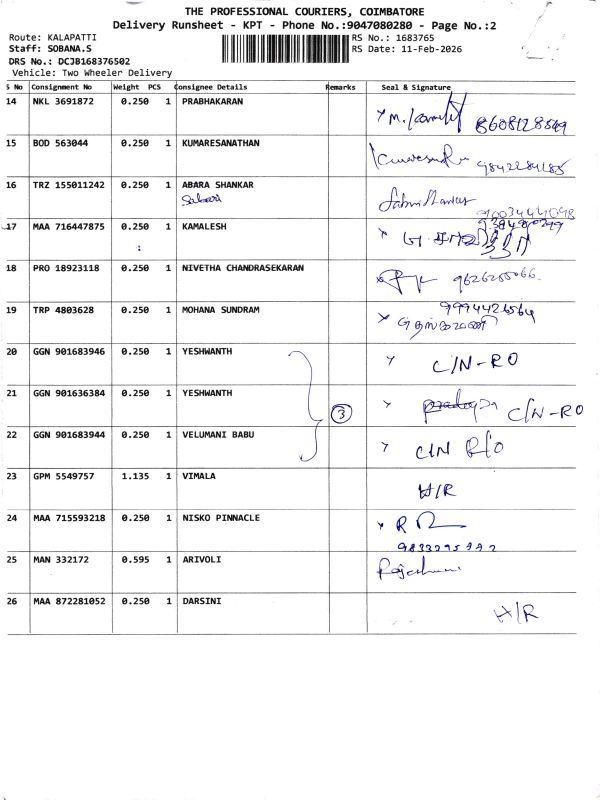 THE PROFESSIONAL COURIERS, COIMBATORE
Delivery Runsheet - KPT - Phone No.:9047080280 - Page No.:2
Route: KALAPATTI
RS No.: 1683765
Staff: SOBANA.S
RS Date: 11-Feb-2026
DRS No.: DCJB168376502
Vehicle: Two Wheeler Delivery
S No Consignment No Weight PCS Consignee Details Remarks Seal & Signature
14 NKL 3691872 0.250 1 PRABHAKARAN
15 BOD 563044 0.250 1 KUMARESANATHAN
16 TRZ 155011242 0.250 1 ABARA SHANKAR
17 MAA 716447875 0.250 1 KAMALESH
18 PRO 18923118 0.250 1 NIVETHA CHANDRASEKARAN
19 TRP 4803628 0.250 1 MOHANA SUNDRAM
20 GGN 901683946 0.250 1 YESHWANTH C/N-RO
21 GGN 901636384 0.250 1 YESHWANTH 3 C/N-RO
22 GGN 901683944 0.250 1 VELUMANI BABU C/N R/O
23 GPM 5549757 1.135 1 VIMALA H/R
24 MAA 715593218 0.250 1 NISKO PINNACLE
25 MAN 332172 0.595 1 ARIVOLI
26 MAA 872281052 0.250 1 DARSINI H/R